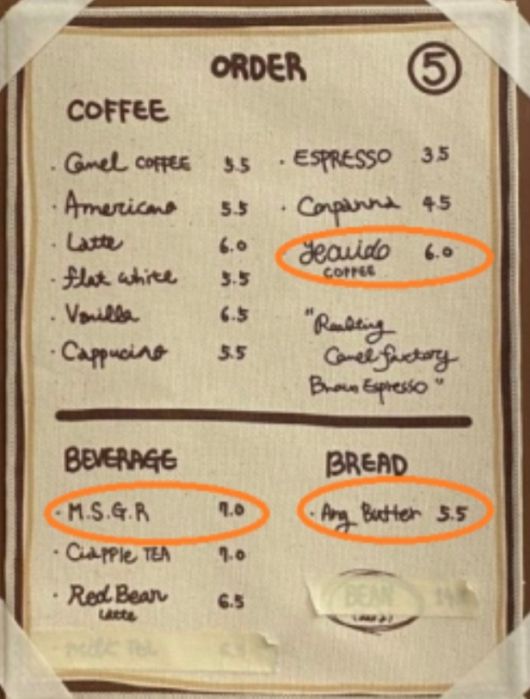 ORDER
5
COFFEE
· Camel COFFEE 5.5
· Americano 5.5
· Latte 6.0
· flat white 5.5
· Vanilla 6.5
· Cappucino 5.5
· ESPRESSO 3.5
· Conpanna 4.5
Jeauido 6.0
COFFEE
"Roasting
Camel factory
Brown Espresso"
BEVERAGE
· M.S.G.R 7.0
· Ciapple TEA 7.0
· Red Bean 6.5
Latte
· MILK TEA
BREAD
· Ang Butter 5.5
BEAN